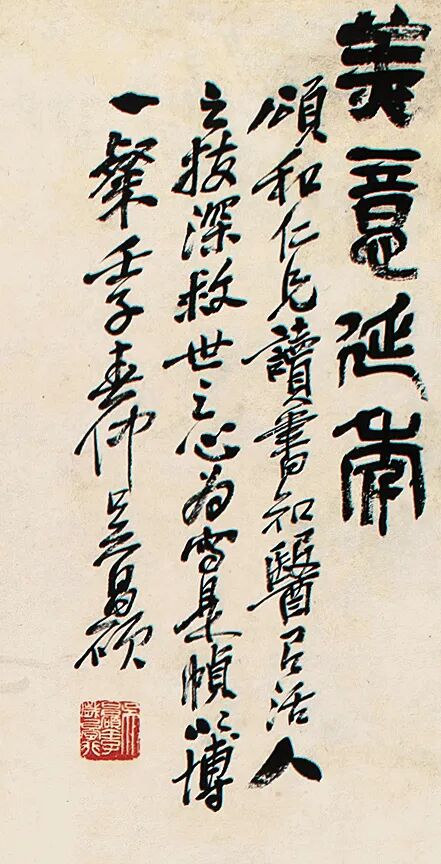 美意延年
頌和仁兄讀書知醫以活人
之技深救世之心為寫是幀以博
一粲壬子春仲吳昌碩